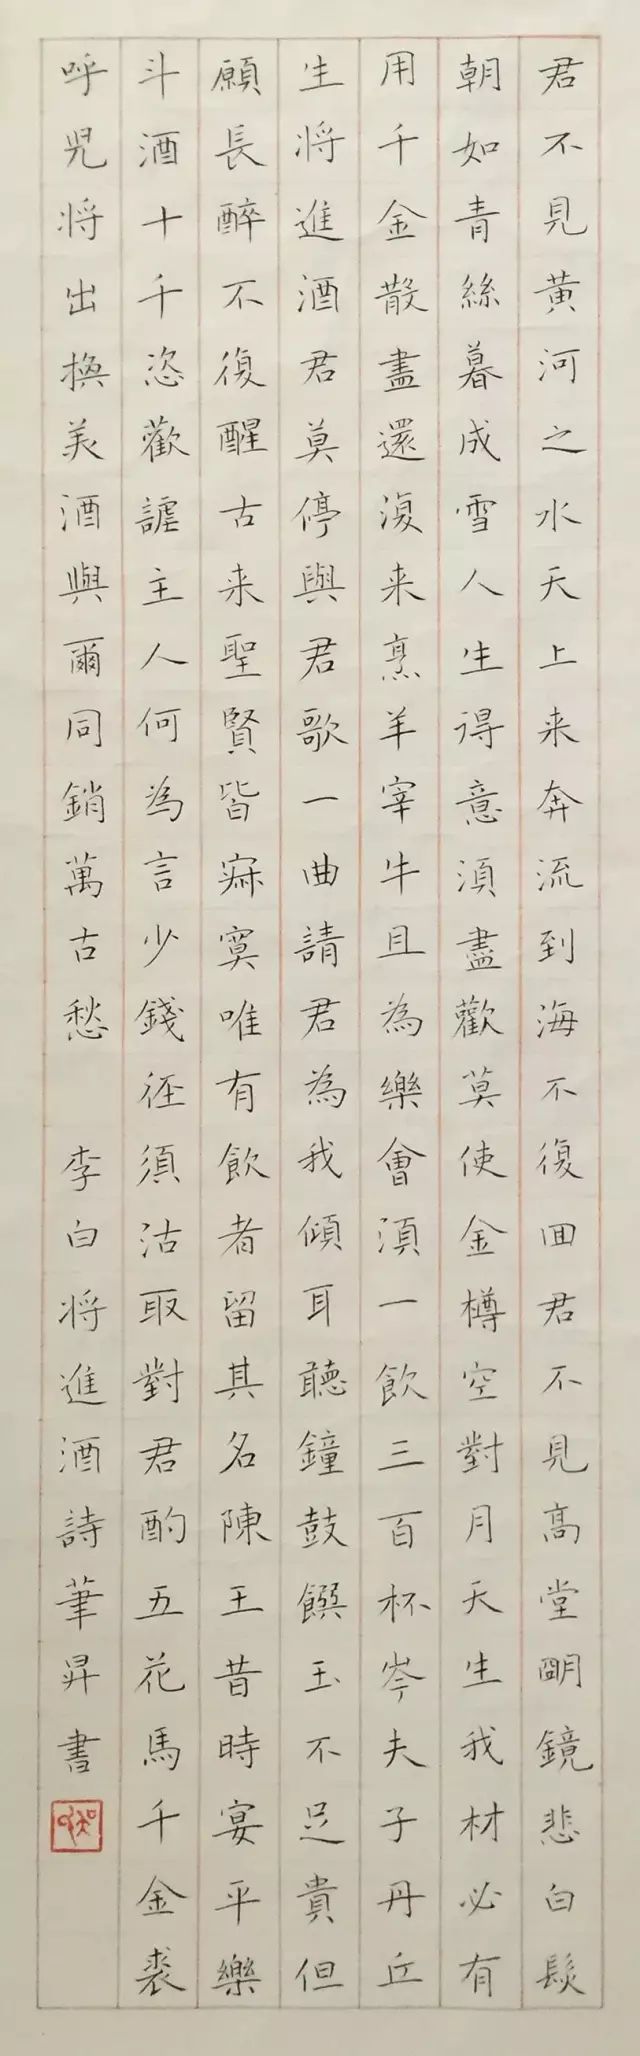 君不見黄河之水天上来奔流到海不復回君不見高堂明鏡悲白髮
朝如青絲暮成雪人生得意須盡歡莫使金樽空對月天生我材必有
用千金散盡還復来烹羊宰牛且為樂會須一飲三百杯岑夫子丹丘
生将進酒君莫停與君歌一曲請君為我傾耳聽鐘鼓饌玉不足貴但
願長醉不復醒古来聖賢皆寂寞唯有飲者留其名陳王昔時宴平樂
斗酒十千恣歡謔主人何為言少錢徑須沽取對君酌五花馬千金裘
呼児将出換美酒與爾同銷萬古愁 李白将進酒詩筆昇書